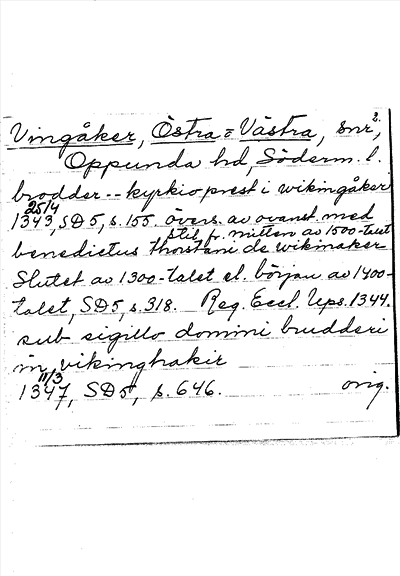 Vingåker, Östra = Västra, snr 2,
Oppunda hd, Söderm. l.
brodder -- kyrkioprest i wikingåker
25/4
1343, SD 5, s. 155. övers. av ovanst. med
stil fr. mitten av 1500-talet
benedictus thorstani de wikinaker
Slutet av 1300-talet el. början av 1400-
talet, SD 5, s. 318. Reg. Eccl. Ups. 1344.
sub sigillo domini brudderi
in vikinghakir
11/3
1347, SD 5, s. 646. orig.